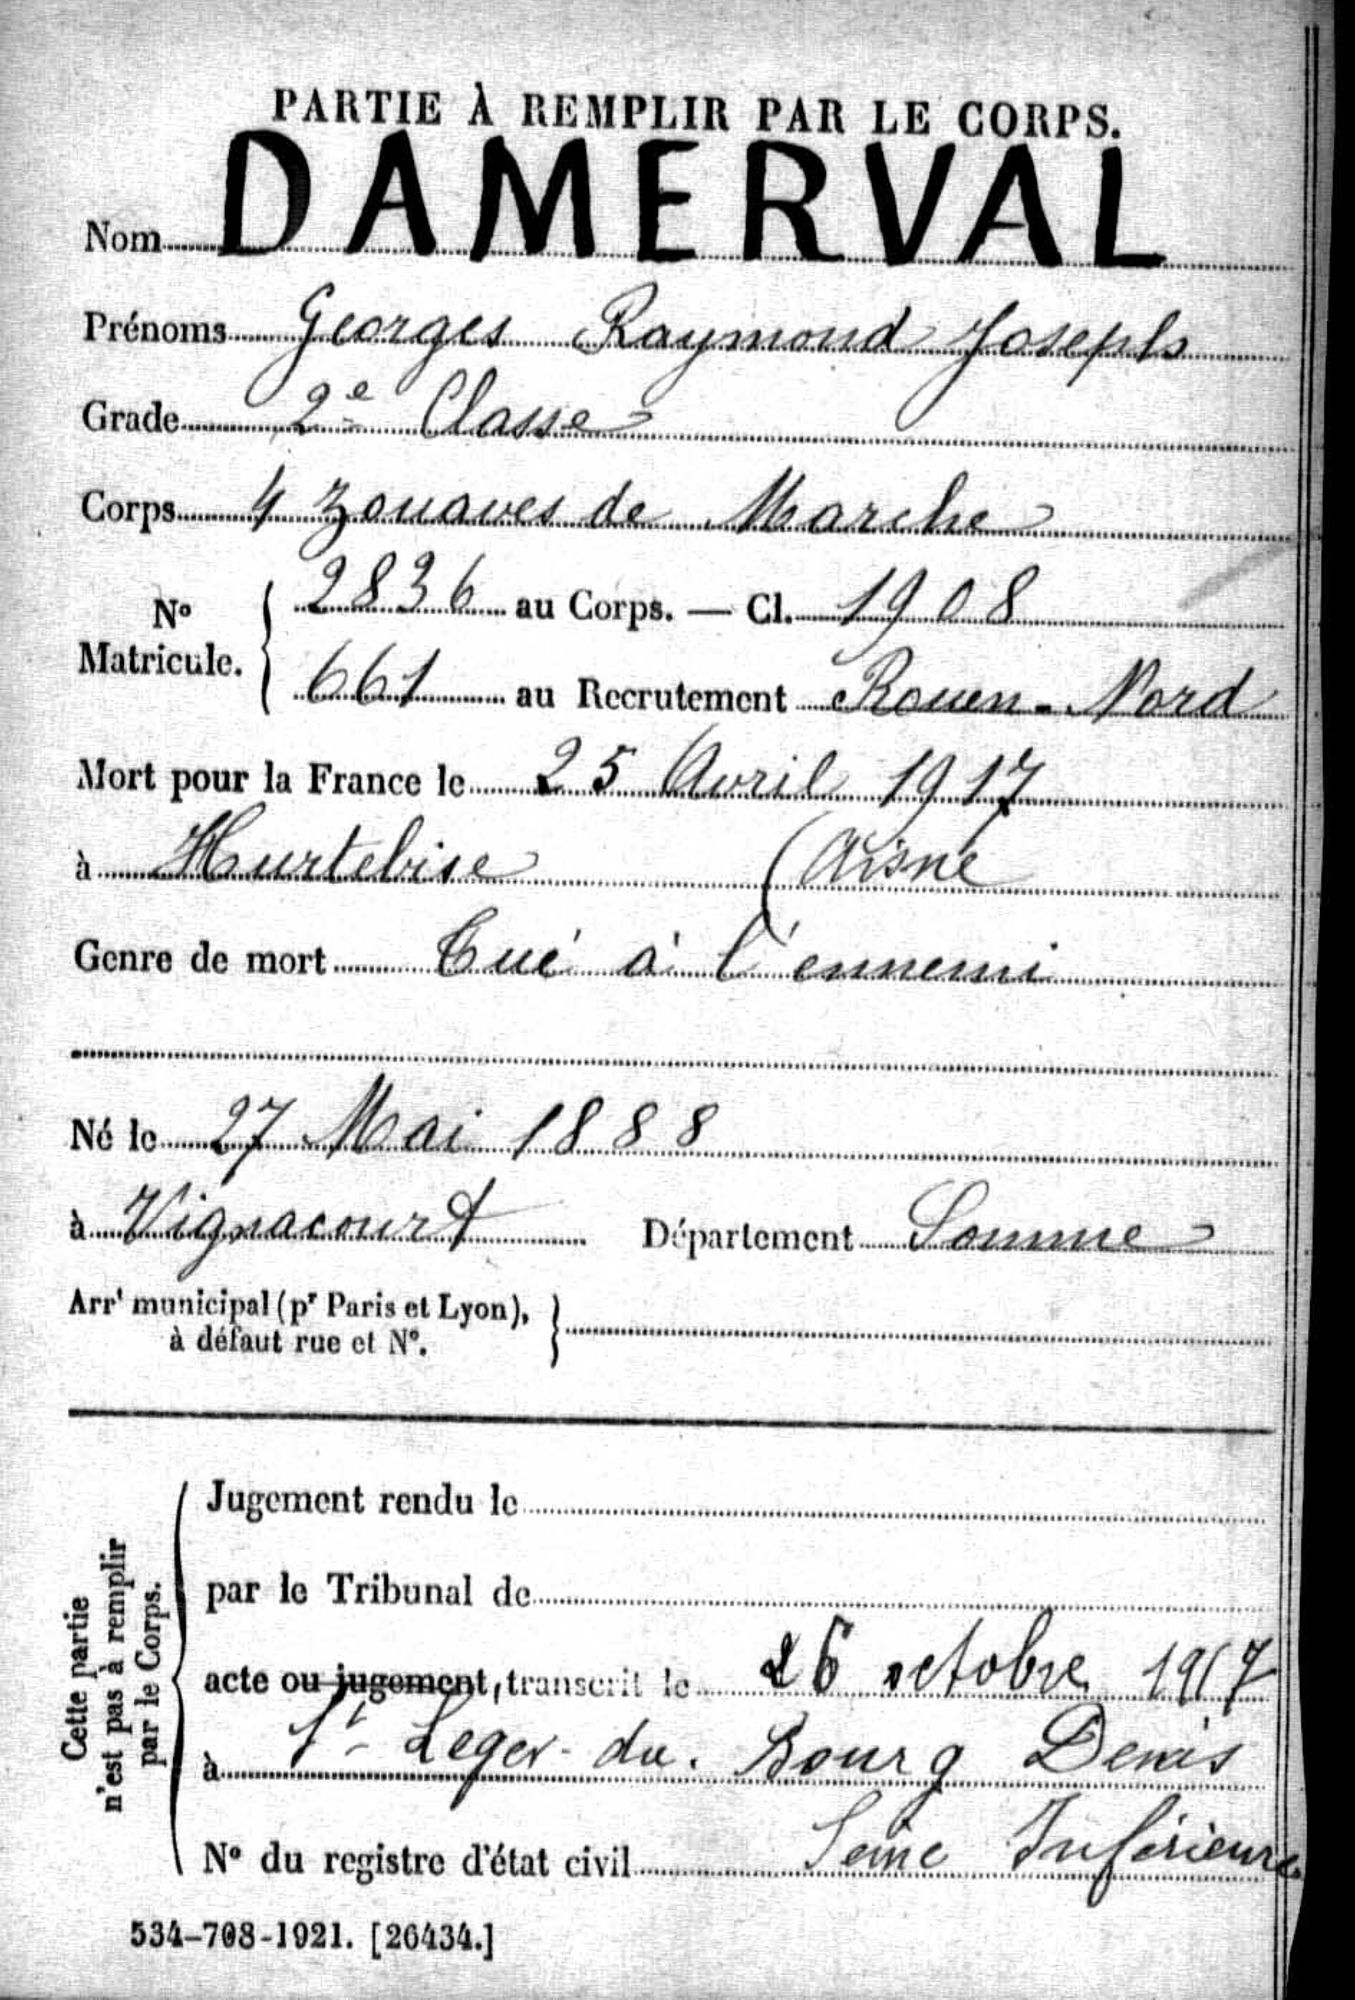 PARTIE À REMPLIR PAR LE CORPS.
Nom DAMERVAL
Prénoms Georges Raymond Joseph
Grade 2e Classe
Corps 4 Zouaves de Marche
No Matricule. { 2836 au Corps. — Cl. 1908
661 au Recrutement Rouen-Nord
Mort pour la France le 25 Avril 1917
à Hurtebise (Aisne
Genre de mort Tué à l'ennemi
Né le 27 Mai 1888
à Vignacourt Département Somme
Arrt municipal (pr Paris et Lyon), }
à défaut rue et No.
Cette partie
n'est pas à remplir
par le Corps.
Jugement rendu le
par le Tribunal de
acte ou jugement, transcrit le 26 octobre 1917
à St Leger-du. Bourg Denis
Seine Inférieure
No du registre d'état civil
534-708-1921. [26434.]